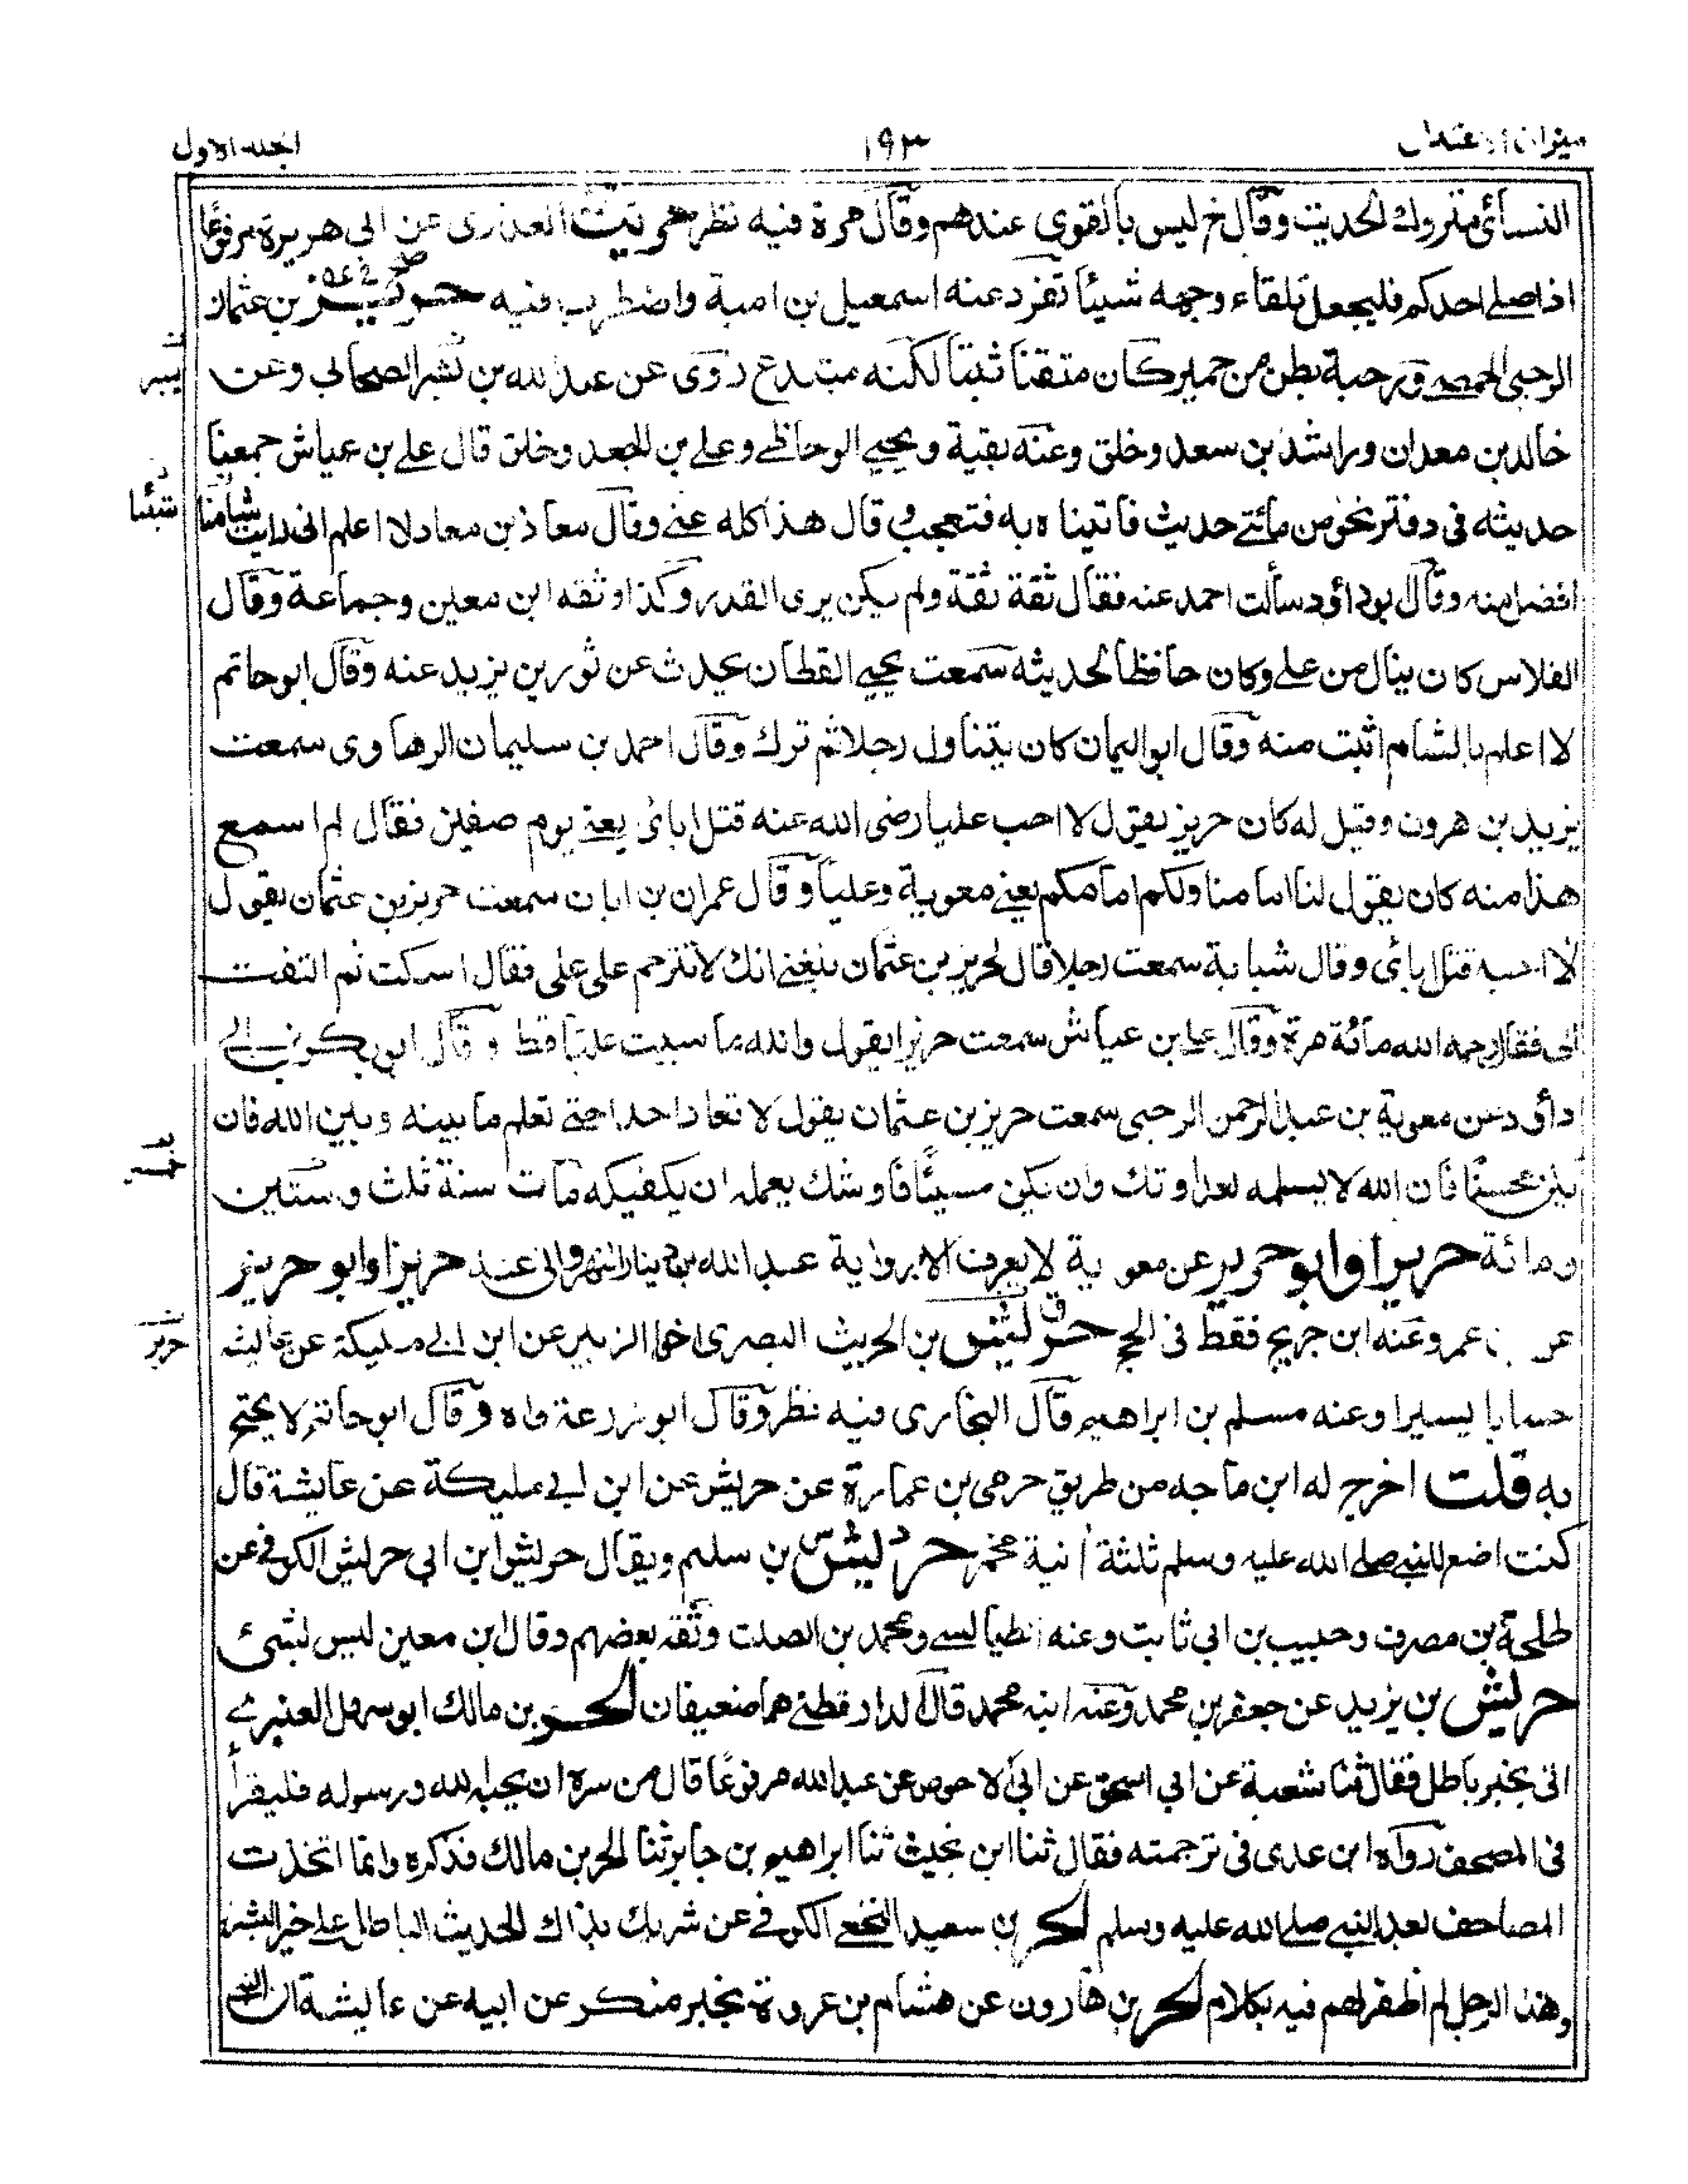 ميزان الاعتدال
١٩٣
الجلد الاول
النسائى متروك الحديث وقال خ ليس بالقوى عندهم وقال مرة فيه نظر حريث العذرى عن ابى هريرة مرفوعًا
اذا صلے احدكم فليجعل تلقاء وجهه شيئا تفرد عنه اسمعيل بن امية واضطرب فيه حريز بن عثمان
الرحبى الحمصے ورحبة بطن من حمير كان متقنا ثبتا لكنه مبتدع روى عن عبد الله بن بشر الصحابى وعن
بسر
خالد بن معدان وراشد بن سعد وخلق وعنه بقية ويحيى الوحاظے وعلے بن الجعد وخلق قال علے بن عياش جمعنا
حديثه فى دفتر نحو من مأئتے حديث فاتيناه به فتعجب وقال هذا كله عنے وقال معاذ بن معاد لا اعلم انى رايت شاميا
شيئا
افضل منه وقال بوداؤد سألت احمد عنه فقال ثقة ثقة ولم يكن يرى القدر وكذا وثقه ابن معين وجماعة وقال
الفلاس كان ينال من علے وكان حافظا لحديثه سمعت يحيى القطان يحدث عن ثور بن يزيد عنه وقال ابو حاتم
لا اعلم بالشام اثبت منه وقال ابو اليمان كان يتناول رجلا ثم ترك وقال احمد بن سليمان الرهاوى سمعت
يزيد بن هرون وقيل له كان حريز يقول لا احب عليا رضى الله عنه قتل ابائ يعنے يوم صفين فقال لم اسمع
هذا منه كان يقول لنا امامنا ولكم امامكم يعنے معوية وعليا وقال عمران بن ابان سمعت حريز بن عثمان يقول
لا احبه قتل ابائ وقال شبابة سمعت رجلا قال لحريز بن عثمان بلغنے انك لا تترحم على على فقال اسكت ثم التفت
الى فقال رحمه الله مائة مرة وقال علے بن عياش سمعت حريزا يقول والله ما سببت عليا قط وقال ابو بكر بن ابے
داؤد عن معوية بن عبد الرحمن الرحبى سمعت حريز بن عثمان يقول لا تعاد احدا حتے تعلم ما بينه وبين الله فان
يكن محسنا فان الله لا يسلمه لعداوتك وان يكن مسيئا فاوشك بعمله ان يكفيكه مات سنة ثلث وستين
ومائة حريز او ابو حريز عن معوية لا يعرف الا برواية عبد الله بن دينار النهروانى عند حريز او ابو حريز
حرير
عن عمرو عنه ابن جريج فقط فى الحج حريش بن الحريث البصرى اخوا الزبير عن ابن ابے مليكة عن عايشه
حسابا يسيرا وعنه مسلم بن ابراهيم قال البخارى فيه نظر وقال ابو زرعة واه وقال ابو حاتم لا يحتج
به قلت اخرج له ابن ماجه من طريق حرمى بن عمارة عن حريش عن ابن ابے مليكة عن عايشة قال
كنت اضع للنبے صلے الله عليه وسلم ثلثة آنية مخمر حريش بن سليم ويقال حريش ابن ابى حريش الكوفے عن
طلحة بن مصرف وحبيب بن ابى ثابت وعنه الطيالسے ومحمد بن الصلت وثقه بعضهم وقال بن معين ليس بشئ
حريش بن يزيد عن جعفر بن محمد وعنه ابنه محمد قال الدارقطنے هما ضعيفان الحر بن مالك ابو سهل العنبرے
اتى بخبر باطل فقال ثنا شعبة عن ابى اسحق عن ابى الاحوص عن عبد الله مرفوعًا قال من سره ان يحب الله ورسوله فليقرأ
فى المصحف رواه ابن عدى فى ترجمته فقال ثنا ابن بخيث ثنا ابراهيم بن جابر ثنا الحر بن مالك فذكره وانما اتخذت
المصاحف بعد النبے صلے الله عليه وسلم الحر بن سعيد النخعے الكوفے عن شريك بذاك الحديث الباطل علے خير البشر
وهذا الرجل لم اظفر لهم فيه بكلام الحر بن هارون عن هشام بن عروة بخبر منكر عن ابيه عن عايشة ان النبے